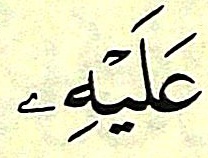 عَلَيْهِۦ